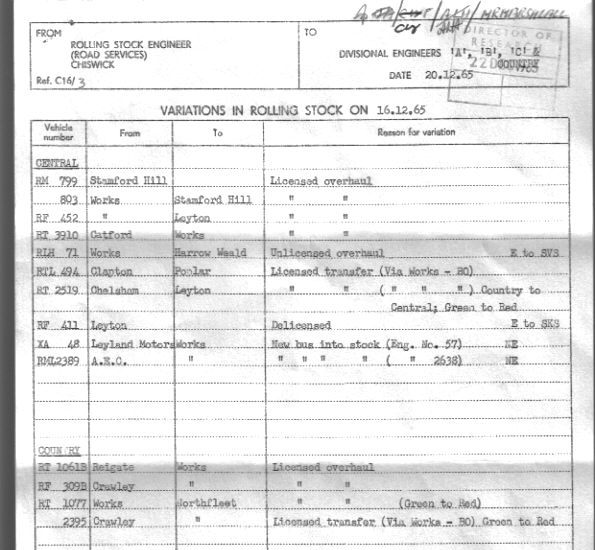 MR MARSHALL
FROM
ROLLING STOCK ENGINEER
(ROAD SERVICES)
CHISWICK
Ref. C16/3
TO
DIVISIONAL ENGINEERS 'A', 'B', 'C' &
COUNTRY
DATE 20.12.65
DIRECTOR OF
RESEARCH
VARIATIONS IN ROLLING STOCK ON 16.12.65
Vehicle number From To Reason for variation
CENTRAL
RM 799 Stamford Hill Licensed overhaul
803 Works Stamford Hill " "
RF 452 " Leyton " "
RT 3910 Catford Works " "
RLH 71 Works Harrow Weald Unlicensed overhaul E to SVS
RTL 494 Clapton Poplar Licensed transfer (Via Works - BO)
RT 2519 Chelsham Leyton " " ( " " ") Country to
Central; Green to Red
RF 411 Leyton Delicensed E to SKS
XA 48 Leyland Motors Works New bus into stock (Eng. No. 57) NE
RML2389 A.E.C. " " " " " ( " 2638) NE
COUNTRY
RT 1061B Reigate Works Licensed overhaul
RF 309B Crawley " " "
RT 1077 Works Northfleet " " (Green to Red)
2395 Crawley " Licensed transfer (Via Works - BO) Green to Red